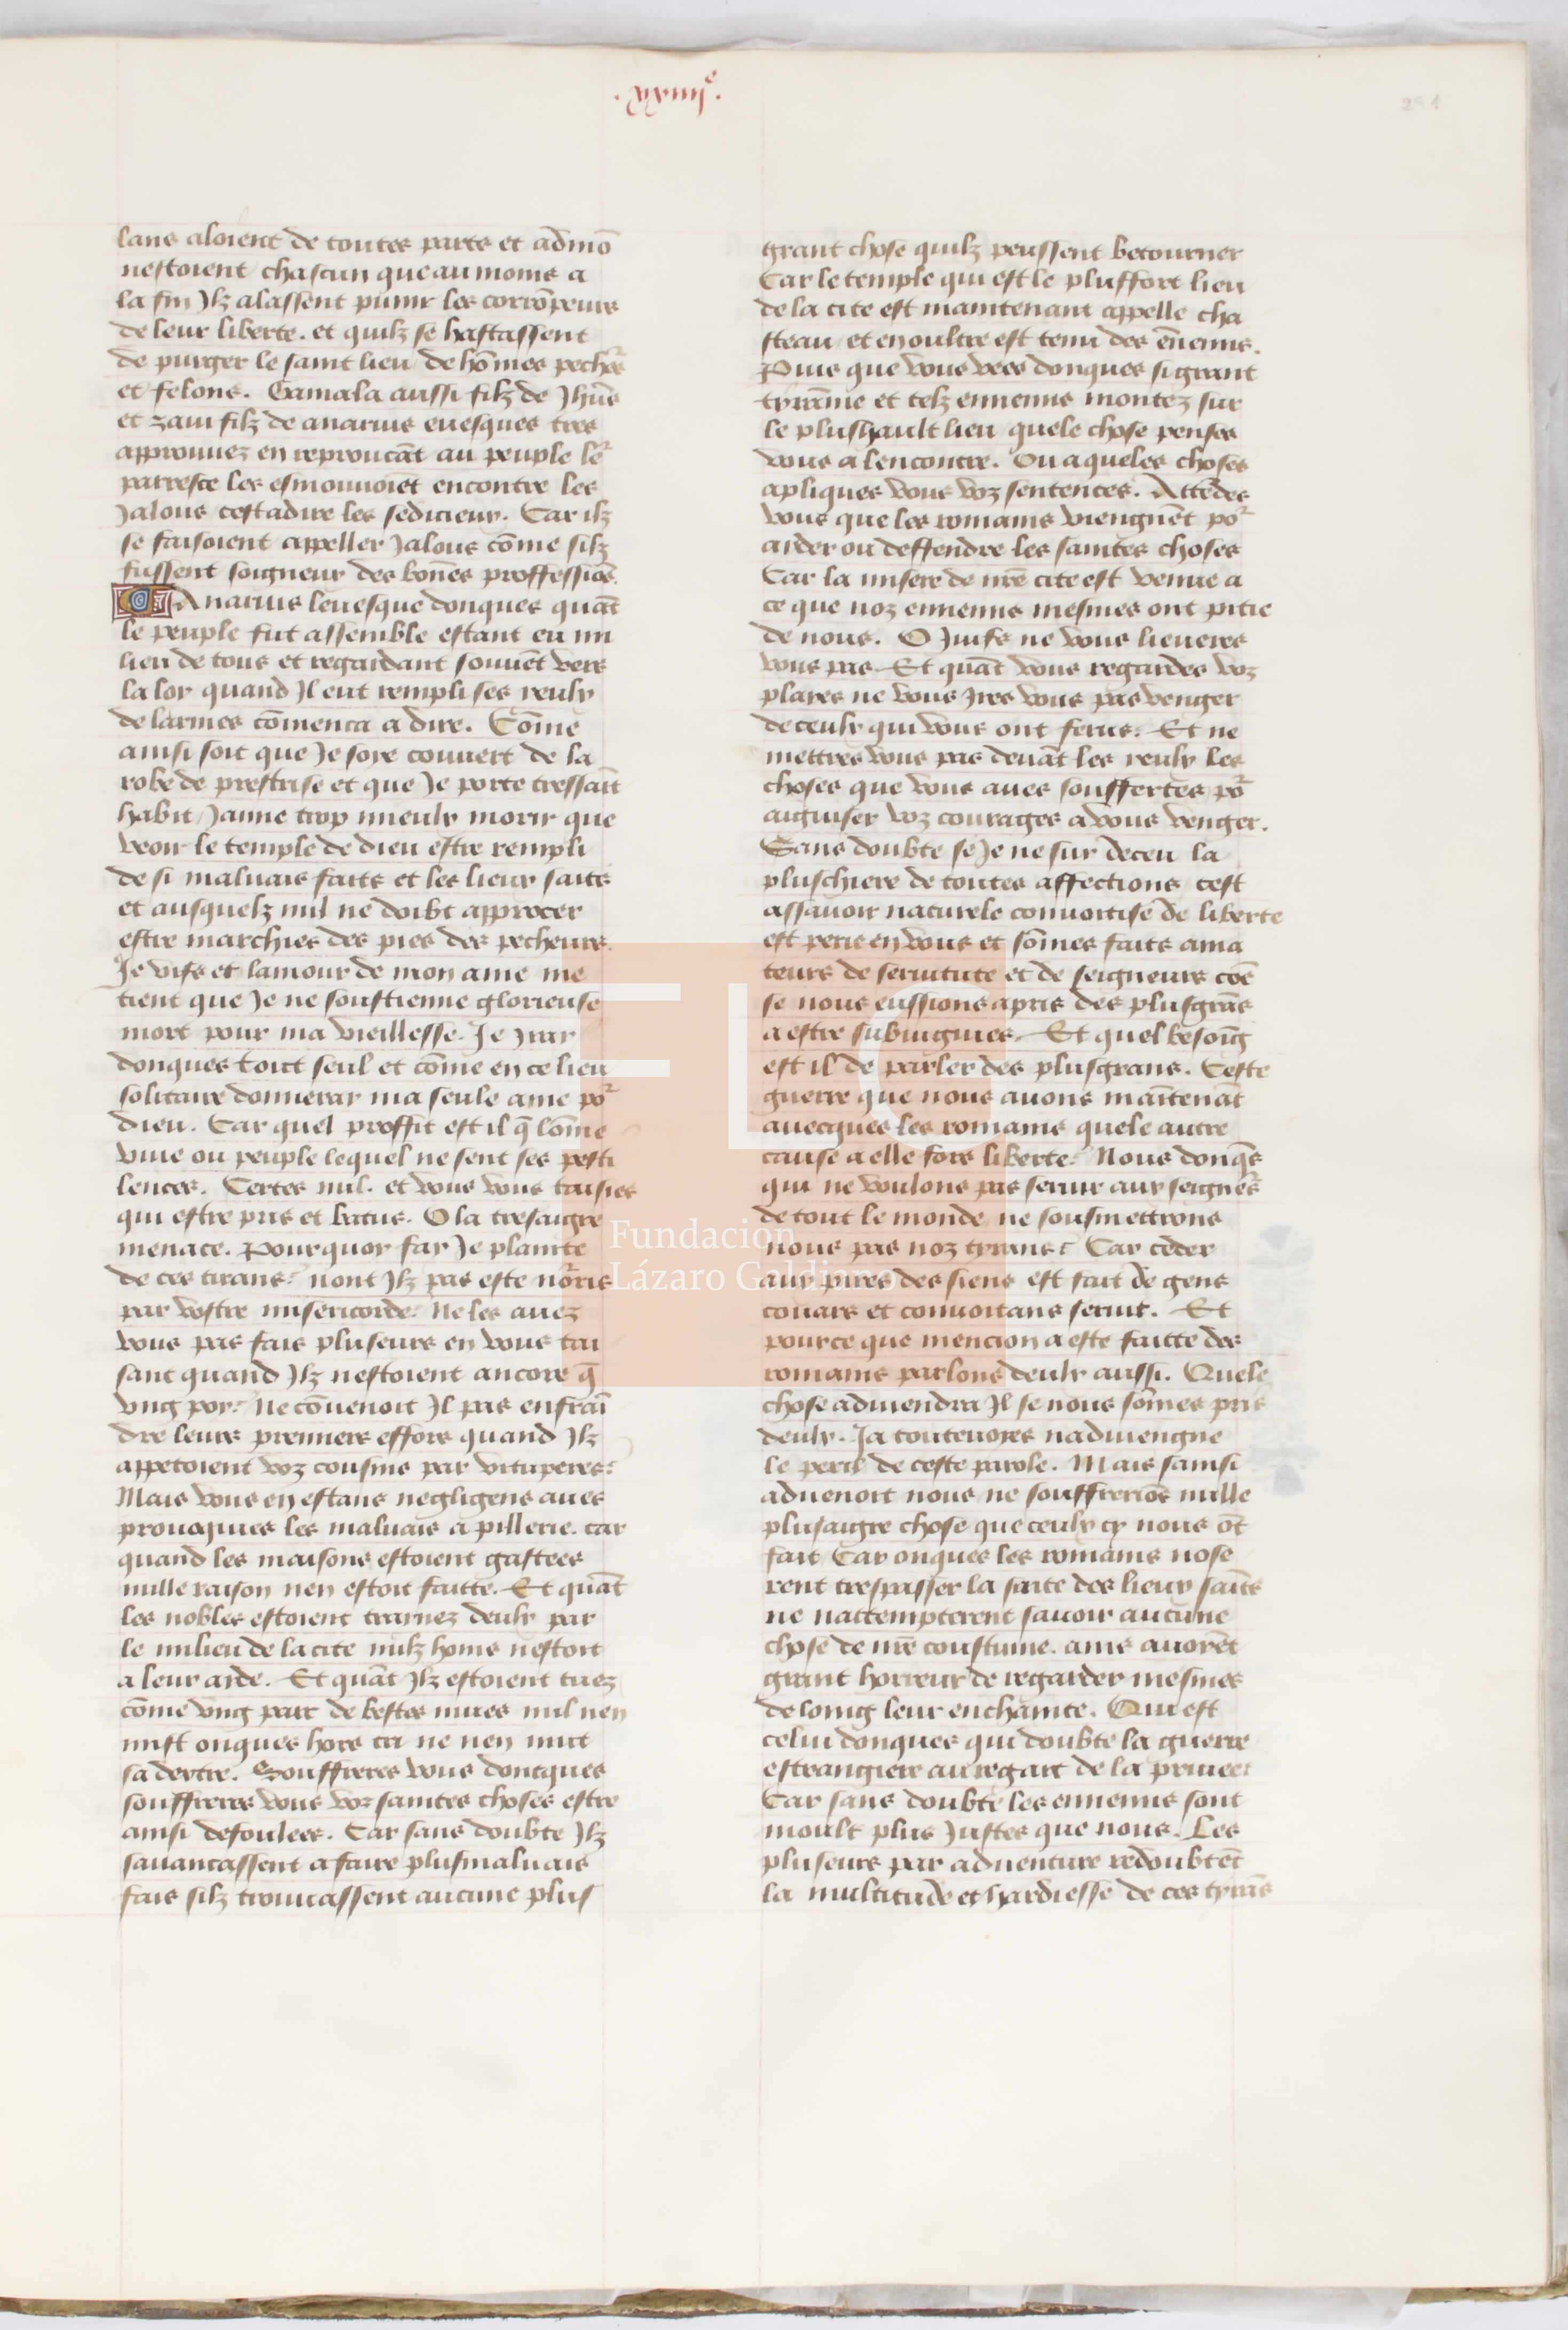 .xxiiij^e.
281
lans aloient de toutes pars et admō
nestoient chascun que au moins a
la fin Jlz alassent punir les corrōpeurs
de leur liberte. et quilz se hastassent
de purger le saint lieu de hōmes pechrs
et felons. Gamala aussi filz de Jhūs
et zain filz de ananus euesques tres
approuuez en reprouuāt au peuple ler
parresce les esmouuoiēt encontre les
Jalous cestadire les sedicieux. Car ilz
se faisoient appeller Jalous cōme silz
fussent soigneur des bōnes proffessiōs.
Ananus leuesque donques quāt
le peuple fut assemble estant en mi
lieu de tous et regardant souuēt vers
la loy quand Jl eut rempli ses yeulx
de larmes cōmenca a dire. Cōme
ainsi soit que Je soye couuert de la
robe de prestrise et que Je porte tressaīt
habit Jaime trop mieulx morir que
veoir le temple de dieu estre rempli
de si maluais faits et les lieux saīts
et ausquelz nul ne doibt approcer
estre marchies des pies des pecheurs.
Je vifs et lamour de mon ame me
tient que Je ne soustienne glorieuse
mort pour ma vieillesse. Je yray
donques tout seul et cōme en ce lieu
solitaire donneray ma seule ame por
dieu. Car quel proffit est il q̄ lōme
viue ou peuple lequel ne sent ses pesti
lences. Certes nul. et vous vous taisies
qui estre pris et batus. O la tresaigre
menace. Pourquoy fay Je plainte
de ces tirans. nont Jlz pas este norris
par vostre misericorde. Ne les auez
vous pas fais pluseurs en vous tai
sant quand Jlz nestoient ancore q̄
vng poy. Ne cōuenoit Jl pas enfrai
dre leurs premiers effors quand Jlz
appetoient voz cousins par vituperes.
Mais vous en estans negligens aues
prouoquies les maluais a pillerie. car
quand les maisons estoient gastees
nulle raison nen estoit faitte. Et quāt
les nobles estoient trainez deulx par
le milieu de la cite nulz homs nestoit
a leur aide. Et quāt Jlz estoient tuez
cōme vng parc de bestes mues nul nen
mist onques hors ca ne nen mut
sa dextre. Souffreres vous doncques
souffreres vous voz saintes choses estre
ainsi defoulees. Car sans doubte Jlz
sauancassent a faire plusmaluais
fais silz trouuassent aucune plus
grant chose quilz peussent betourner
Car le temple qui est le pluffort lieu
de la cite est maintenant appelle cha
steau et en oultre est tenu des ēnemis.
Puis que vous vees donques si grant
tyrānie et telz ennemis montez sur
le plushault lieu quele chose penses
vous a lencontre. Ou aqueles choses
apliques vous voz sentences. Attēdes
vous que les romains viengnēt por
aider ou deffendre les saintes choses
Car la misere de nrē cite est venue a
ce que noz ennemis mesmes ont pitie
de nous. O Juifs ne vous lieueres
vous pas. Et quāt vous regardes voz
plaies ne vous Jres vous pas venger
de ceulx qui vous ont ferus. Et ne
mettres vous pas deuāt les yeulx les
choses que vous aues souffertes por
aiguiser voz courages a vous venger.
Sans doubte se Je ne suy deceu la
pluschiere de toutes affections cest
assauoir naturele conuoitise de liberte
est perie en vous et sōmes faits ama
teurs de seruitute et de seigneurs cōe
se nous eussions apris des plusgrās
a estre subiugues. Et quel besoīg
est il de parler des plusgrans. Ceste
guerre que nous auons maītenāt
auecques les romains quele autre
cause a elle fors liberte. Nous donq̄s
qui ne voulons pas seruir aux seigners
de tout le monde ne sousmettrons
nous pas noz tyrans. Car cēder
aux pires des siens est fait de gens
couars et conuoitans seruir. Et
pource que mencion a este faitte des
romains parlons deulx aussi. Quele
chose aduiendra Jl se nous sōmes pris
deulx. Ja touteuoyes naduiengne
le peril de ceste parole. Mais sainsi
aduenoit nous ne souffreriōs nulle
plusaigre chose que ceulx cy nous ōt
fait Car onques les romains nose
rent trespasser la saite des lieux saīts
ne nattempterent sauoir aucune
chose de nrē coustume. ains auoiēt
grant horreur de regarder mesmes
de loing leur enchainte. Qui est
celui donques qui doubte la guerre
estrangiere au regart de la priuee.
Car sans doubte les ennemis sont
moult plus Justes que nous. Les
pluseurs par aduenture redoubtēt
la multitude et hardiesse de ces tyrās
Fundación
Lázaro Galdiano
FLG